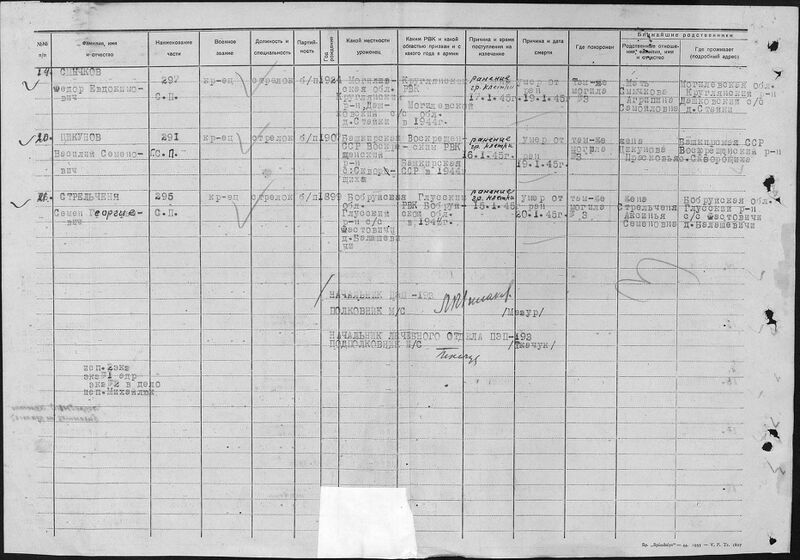 БЛИЖАЙШИЕ РОДСТВЕННИКИ
№№ п/п
Фамилия, имя и отчество
Наименование части
Военное звание
Должность и специальность
Партийность
Год рождения
Какой местности уроженец
Каким РВК и какой областью призван и с какого года в армии
Причина и время поступления на излечение
Причина и дата смерти
Где похоронен
Родственные отношения, фамилия, имя и отчество
Где проживает (подробный адрес)
СЫЧКОВ
Федор Евдокимо-
вич
297
С.П.
кр-ец
стрелок
б/п
1924
Могилев-
ская обл.
Круглянский
Круглянским
РВК
Могилевской
обл.
в 1944г.
ранение
гр. клетки
17.1.45г.
умер от
ран
19.1.45г.
там-же
могила
№ 3
Мать
Сычкова
Агрипина
Самойловна
Могилевская обл.
Круглянский р-н
Дашковский с/с
д.Стайки
20.
ЦИКУНОВ
Василий Семено-
вич
291
С.П.
кр-ец
стрелок
б/п
1907
Башкирская
ССР Воскре-
сенский
р-н
Воскресен-
ским РВК
Башкирская
ССР в 1944г
ранение
гр. клетки
16.1.45г.
умер от
ран
19.1.45г.
там-же
могила
№ 3
жена
Цикунова
Прасковья
Башкирская ССР
Воскресенский р-н
21.
СТРЕЛЬЧЕНЯ
Семен Георгие-
вич
295
С.П.
кр-ец
стрелок
б/п
1899
Бобруйская
обл.
Глусский
р-н с/с
Фастовичи
д.Балашеви
чи
Глусским
РВК Бобруй-
ской обл.
в 1944г.
ранение
гр. клетки
15.1.45г
умер от
ран
20.1.45г.
там-же
могила
№ 3
жена
Стрельченя
Аксинья
Семеновна
Бобруйская обл.
Глусский р-н
с/с Фастовичи
д.Балашевичи
НАЧАЛЬНИК ПЭП-193
ПОЛКОВНИК М/С /Мазур/
НАЧАЛЬНИК ЛЕЧЕБНОГО ОТДЕЛА ПЭП-193
ПОДПОЛКОВНИК М/С /Ткачук/
исп.2экз
экз№1 адр
экз№2 в дело
исп.Михайлюк